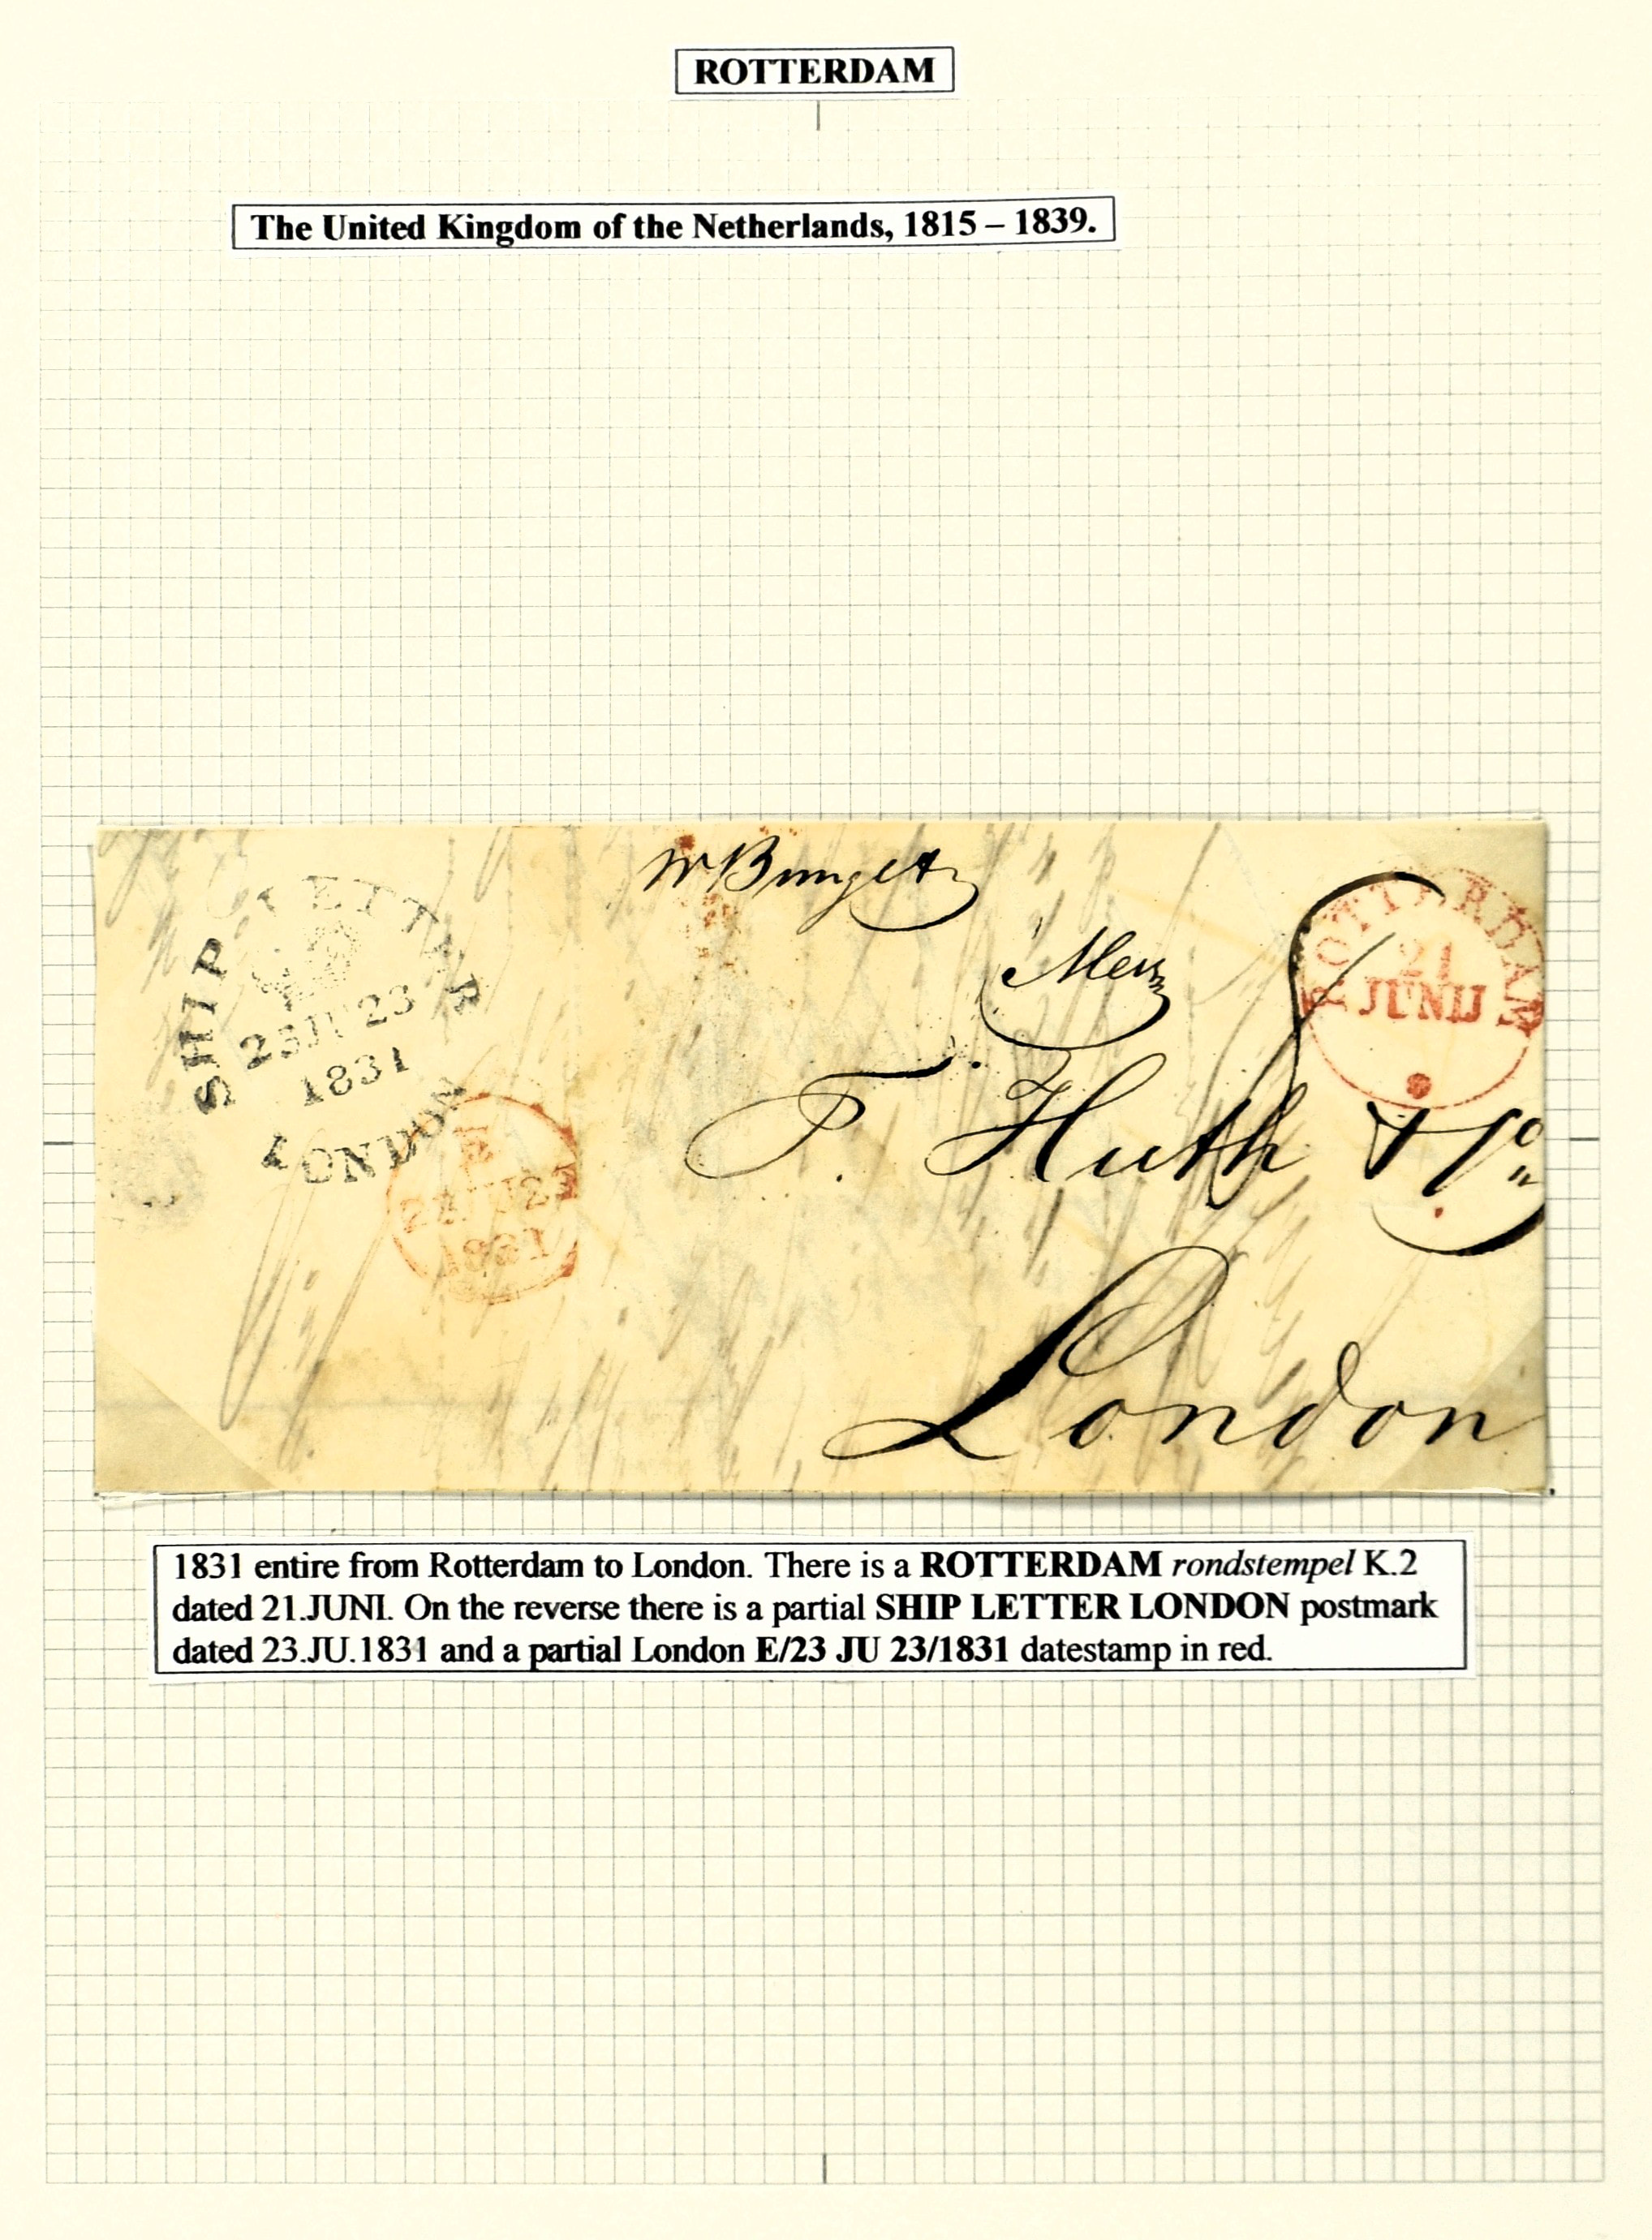 ROTTERDAM
The United Kingdom of the Netherlands, 1815 – 1839.
SHIP LETTER
23 JU 23
1831
LONDON
Mess
ROTTERDAM
21
JUNIJ
F. Huth & Co
1831
London
1831 entire from Rotterdam to London. There is a ROTTERDAM rondstempel K.2
dated 21.JUNI. On the reverse there is a partial SHIP LETTER LONDON postmark
dated 23.JU.1831 and a partial London E/23 JU 23/1831 datestamp in red.